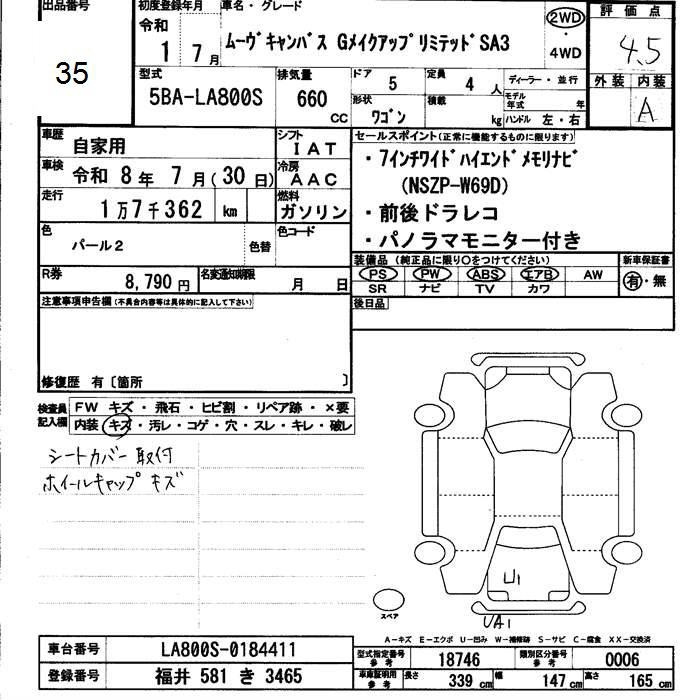 出品番号
35
初度登録年月
令和
1 7月
車名・グレード
ムーヴキャンバス GメイクアップリミテッドSA3
2WD
・
4WD
評価点
4.5
外装 内装
A
型式
5BA-LA800S
排気量
660
CC
ドア
5
定員
4 人
ディーラー・並行
形状
ワゴン
積載
kg
モデル年式 年
ハンドル 左・右
車歴
自家用
シフト
IAT
車検
令和 8年 7月(30日)
冷房
AAC
走行
1万7千362 km
燃料
ガソリン
色
パール2
色替
色コード
R券
8,790円
名変通知期限
月 日
セールスポイント(正常に機能するものに限ります)
・7インチワイドハイエンドメモリナビ
(NSZP-W69D)
・前後ドラレコ
・パノラマモニター付き
装備品(純正品に限り○をつけてください)
PS PW ABS エアB AW
SR ナビ TV カワ
新車保証書
有・無
後日品
注意事項申告欄(不具合内容等は具体的に記入して下さい)
修復歴 有〔箇所 〕
検査員
記入欄
FW キズ・飛石・ヒビ割・リペア跡・×要
内装 キズ・汚レ・コゲ・穴・スレ・キレ・破レ
シートカバー取付
ホイールキャップキズ
U1
UA1
スペア
A-キズ E-エクボ U-凹み W-補修跡 S-サビ C-腐食 XX-交換済
車台番号
LA800S-0184411
登録番号
福井 581 き 3465
型式指定番号
参考
18746
類別区分番号
参考
0006
車庫証明用
参考
長さ 339cm 幅 147cm 高さ 165cm